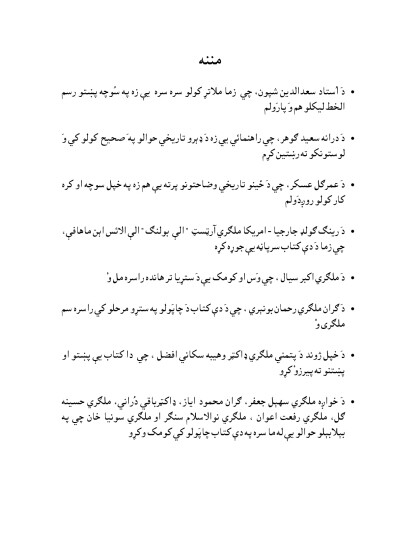 مننه
• دَ اُستاد سعدالدين شپون، چي زما ملاتړ کولو سره سره يې زه په سُوچه پښتو رسم
الخط ليکلو هم وَ پارَولم
• دَ درانه سعيد ګوهر، چي راهنمائي يې زه دَ ډېرو تاريخي حوالو په صحيح کولو کي وَ
لوستونکو ته رښتين کړم
• دَ عمرګل عسکر، چي دَ ځينو تاريخي وضاحتونو پرته يې هم زه په خپل سوچه او کره
کار کولو روږدَولم
• دَ رينګ ګولډ جارجيا - امريکا ملګري آرټسټ "الې بولنګ" الې الائس اېن ماهافې،
چي زما دَ دې کتاب سرپاڼه يې جوړه کړه
• دَ ملګري اکبر سيال، چي وَس او کومک يې دَ ستړيا تر هانده راسره مل وُ
• دَ ګران ملګري رحمان بونېري، چي دَ دې کتاب دَ چاپَولو په ستړو مرحلو کي راسره سم
ملګری وُ
• دَ خپل ژوند دَ پتمني ملګري ډاکټر وهيبه سکاني افضل، چي دا کتاب يې پښتو او
پښتنو ته پيرزوُ کړو
• دَ خواږه ملګري سهېل جعفر، ګران محمود اياز، ډاکټرباقي دُراني، ملګري حسينه
ګل، ملګري رفعت اعوان ، ملګري نوالاسلام سنګر او ملګري سونيا خان چي په
بېلابېلو حوالو يې له ما سره په دې کتاب چاپَولو کي کومک وکړو